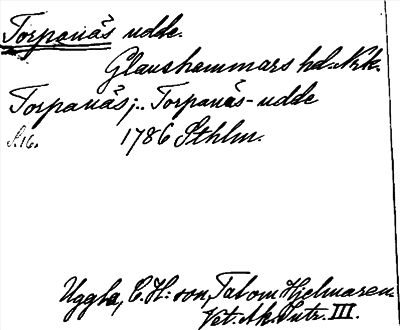 Torpanäs udde.
Glanshammars hd. Nrk.
Torpanäs;.. Torpanäs-udde
S. 16. 1786 Sthlm.
Uggla, C. H:son, Tal om Hjelmaren.
Vet. Ak. Intr. III.